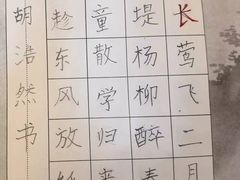 长莺飞二月
堤杨柳醉春
童散学归来
趁东风放纸
胡浩然书